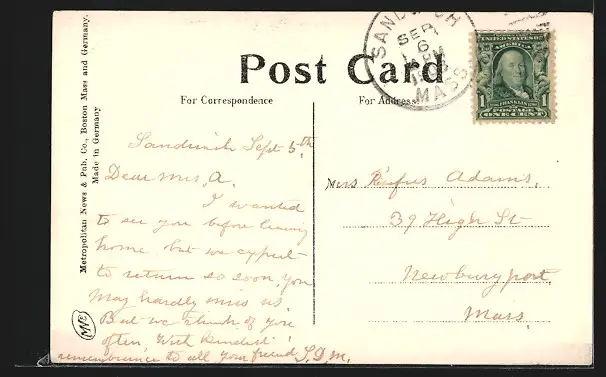 Post Card
For Correspondence
For Address
Metropolitan News & Pub. Co., Boston Mass and Germany.
Made in Germany
SANDWICH
SEP
6
MASS
UNITED STATES OF AMERICA
1 FRANKLIN 1
POSTAGE
ONE CENT
Sandwich Sept 5th
Dear Mrs. A.
I wanted
to see you before leaving
home, but we expect
to return so soon, you
may hardly miss us
But we think of you
often, With kindest
remembrance to all your friend S.D.M.
Mrs Rufus Adams.
39 High St
Newburyport,
Mass.